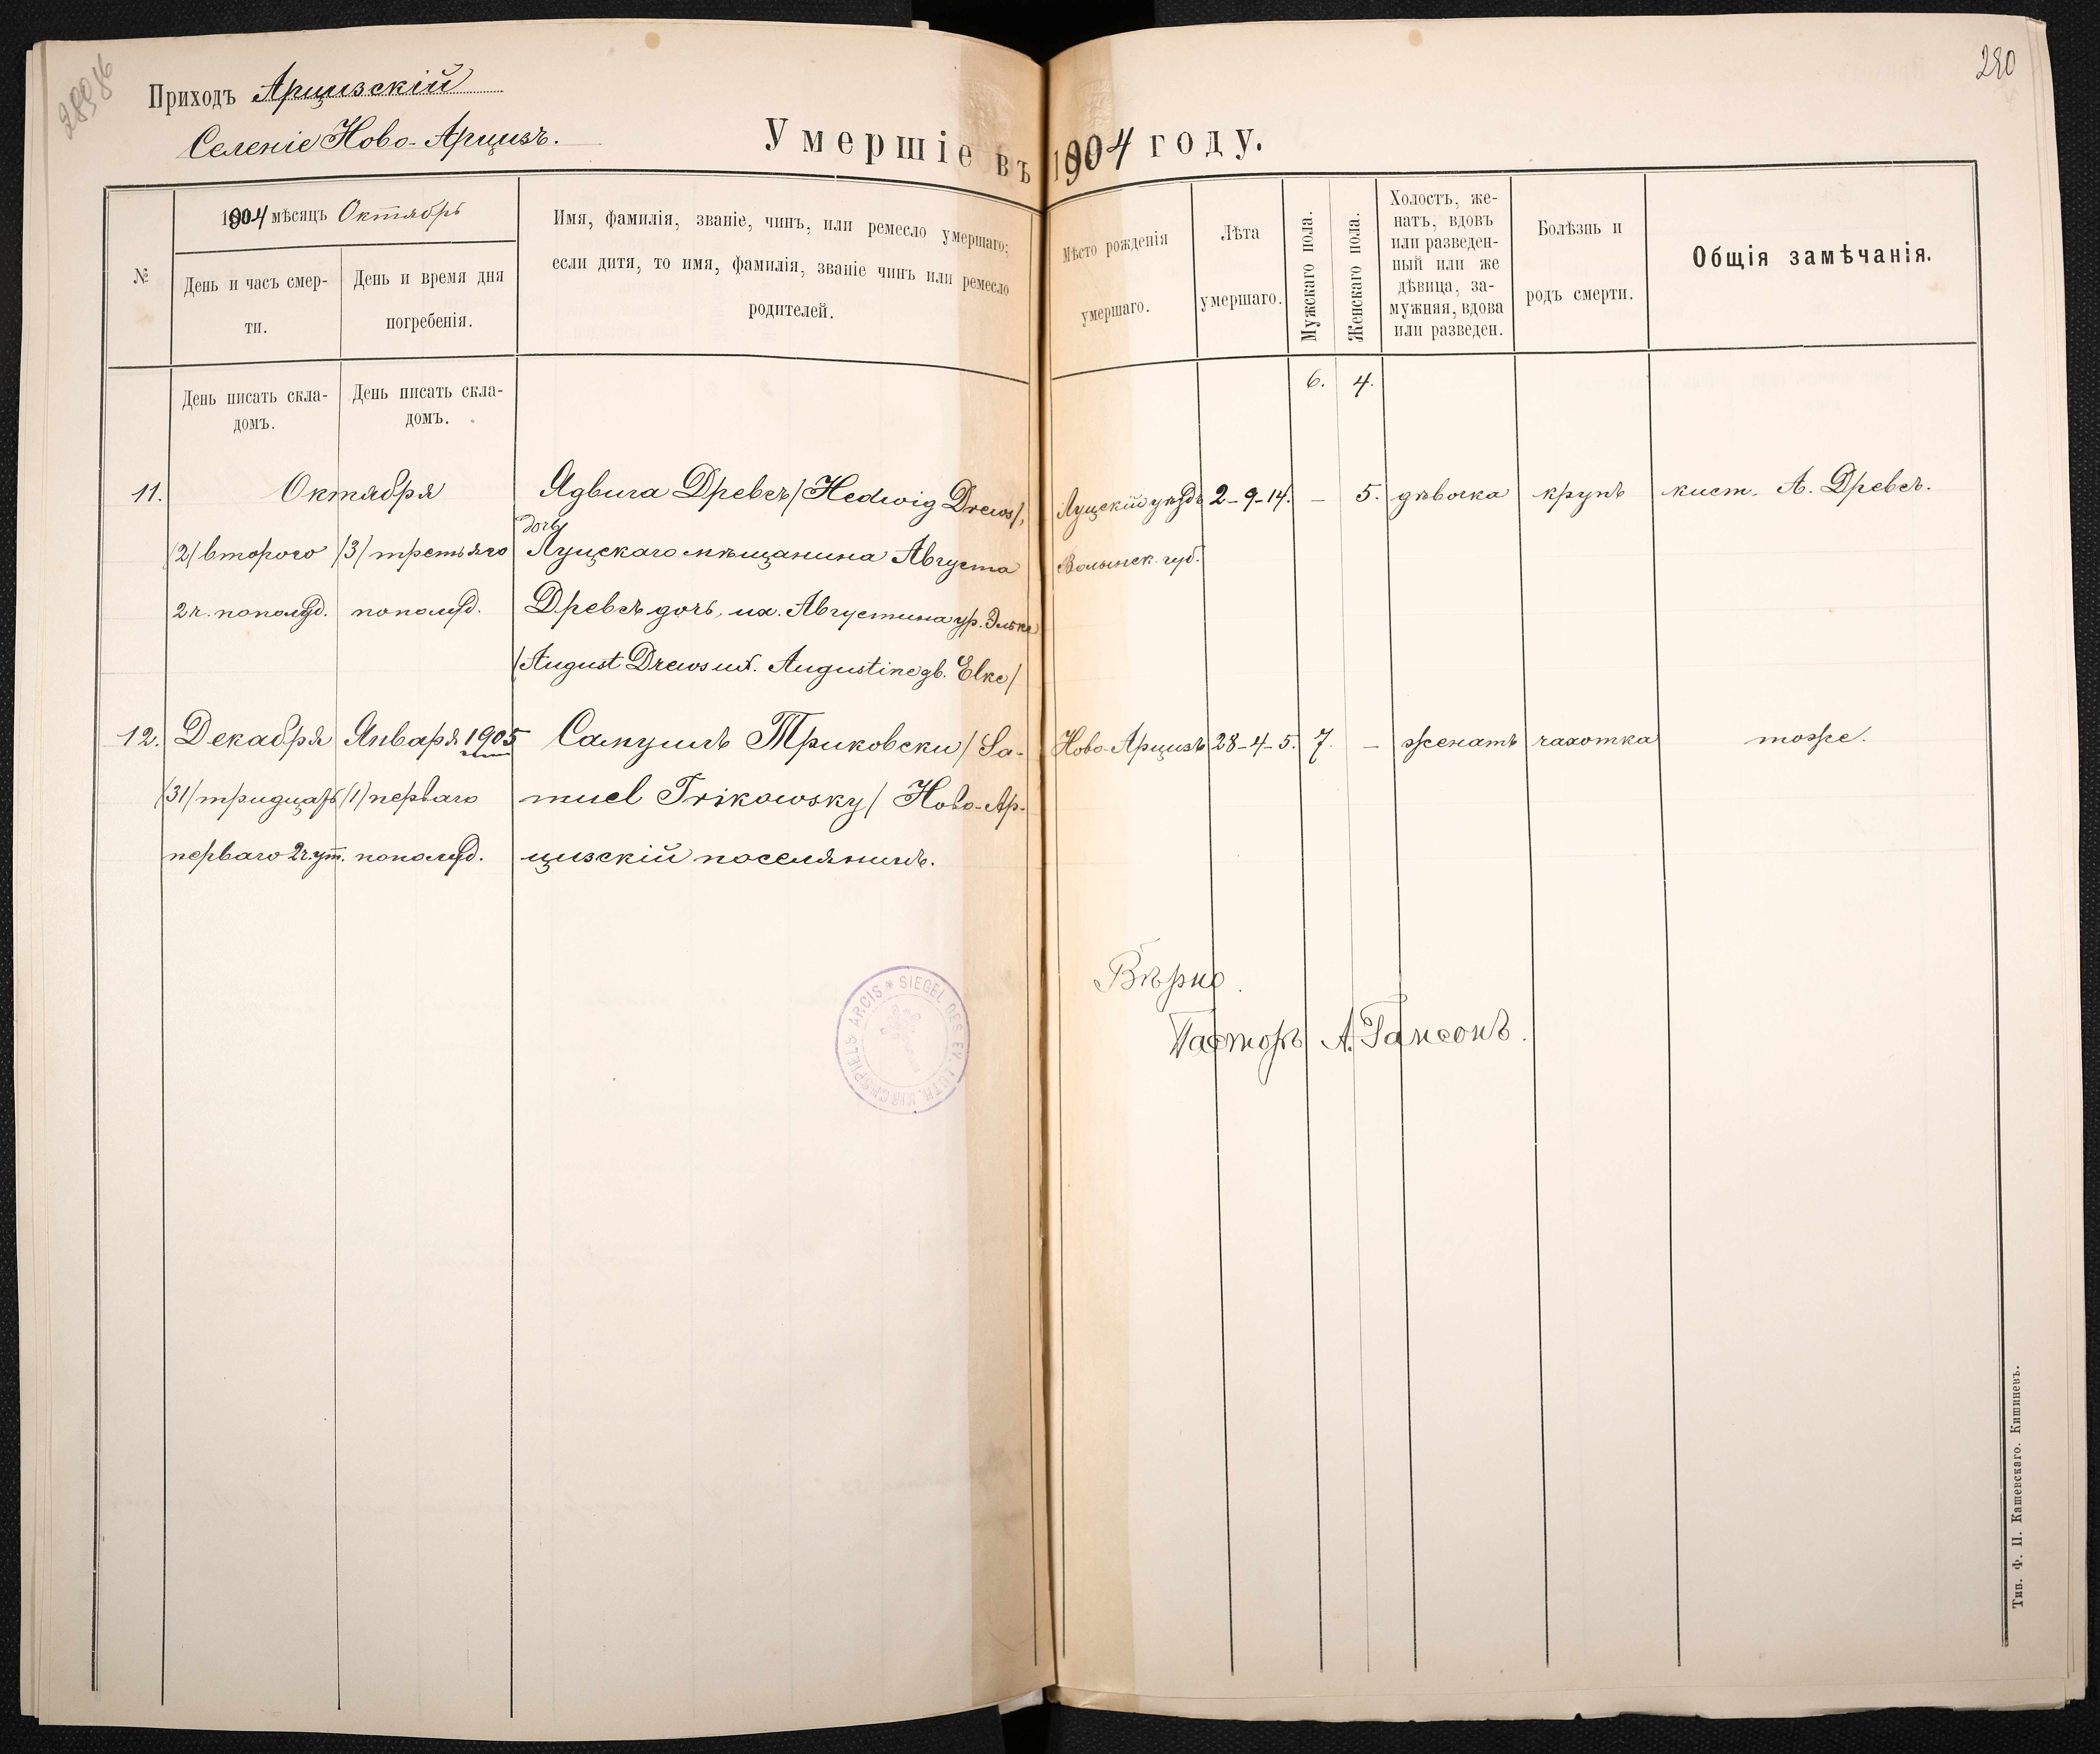 280
Приходъ Арцизскій
Селеніе Ново-Арцизъ.
Умершіе въ 1904 году.
№
1904 мѣсяцъ Октябрь
День и часъ смер-
ти.
День и время дня
погребенія.
Имя, фамилія, званіе, чинъ, или ремесло умершаго;
если дитя, то имя, фамилія, званіе чинъ или ремесло
родителей.
Мѣсто рожденія
умершаго.
Лѣта
умершаго.
Мужскаго пола.
Женскаго пола.
Холостъ, же-
натъ, вдовъ
или разведен-
ный или же
дѣвица, за-
мужняя, вдова
или разведен.
Болѣзнь и
родъ смерти.
Общія замѣчанія.
День писать скла-
домъ.
День писать скла-
домъ.
6. 4.
11. Октября Ядвига Древсъ /Hedwig Drews/, Луцкій уѣздъ 2-9-14. – 5. дѣвочка крупъ кист. А. Древсъ.
дочь
/2/ второго /3/ третьяго Луцкаго мѣщанина Августа Волынск. губ.
2 ч. пополуд. пополуд. Древсъ дочь, их. Августина ур. Эльке
/August Drews u. Augustine gb. Elke/
12. Декабря Января 1905 Самуилъ Триковски /Sa- Ново-Арцизъ 28-4-5. 7. – женатъ чахотка тоже.
/31/ тридцать /1/ перваго muel Trikowsky/ Ново-Ар-
перваго 2 ч. ут. пополуд. цизскій поселянинъ.
Вѣрно.
Пасторъ А. Гансонъ.
SIEGEL DES EV. LUTH. KIRCHSPIELS ARCIS *
Тип. Ф. П. Кашевскаго. Кишиневъ.